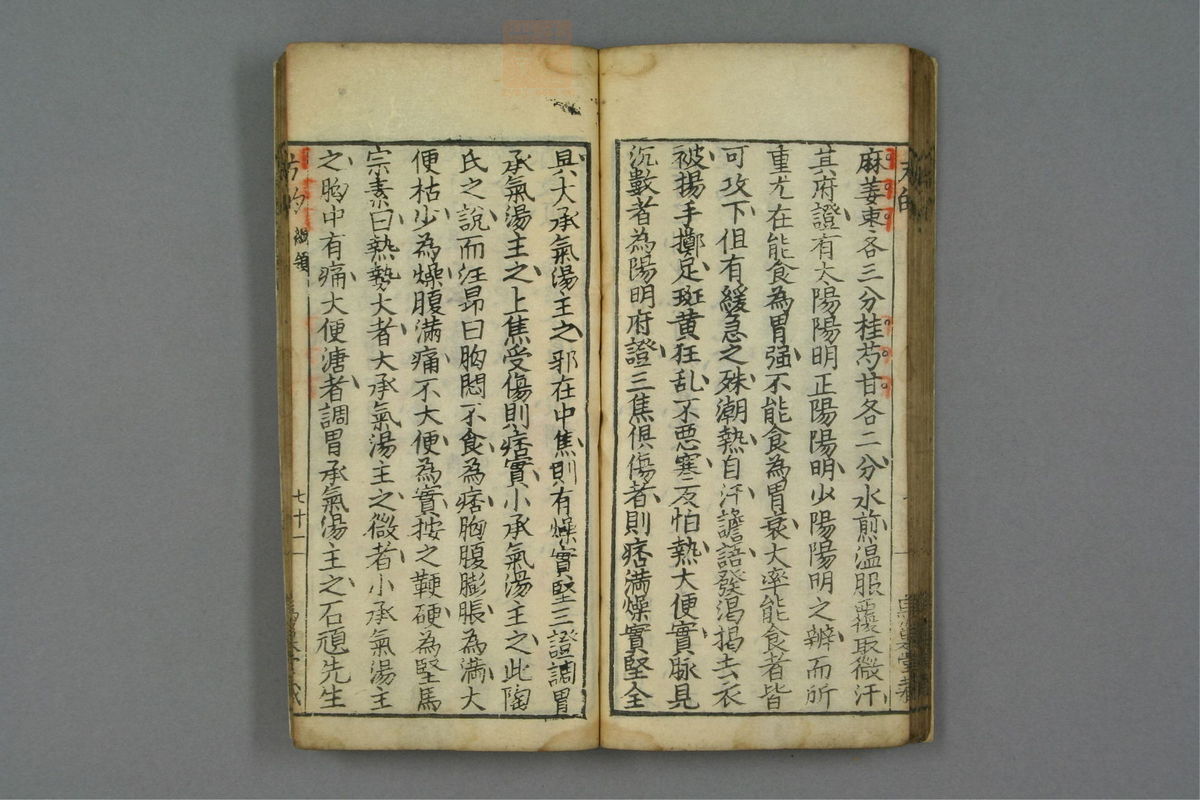 麻姜枣各三分桂芍甘各二分水煎温服覆取微汗
其府證有太陽陽明正陽陽明少陽陽明之辨而所
重尤在能食為胃强不能食為胃衰大率能食者皆
可攻下但有緩急之殊潮熱自汗譫語發渴揭去衣
被揚手擲足斑黄狂乱不悪寒反怕熱大便實脉見
沉數者為陽明府證三焦俱傷者則痞満燥實堅全
具大承氣湯主之邪在中焦則有燥實堅三證調胃
承氣湯主之上焦受傷則痞實小承氣湯主之此陶
氏之説而汪昂曰胸悶不食為痞胸腹膨脹為満大
便枯少為燥腹满痛不大便為實按之鞕硬為堅馬
宗素曰熱勢大者大承氣湯主之微者小承氣湯主
之胸中有痛大便溏者調胃承氣湯主之石頑先生
方的
綱領
七十一